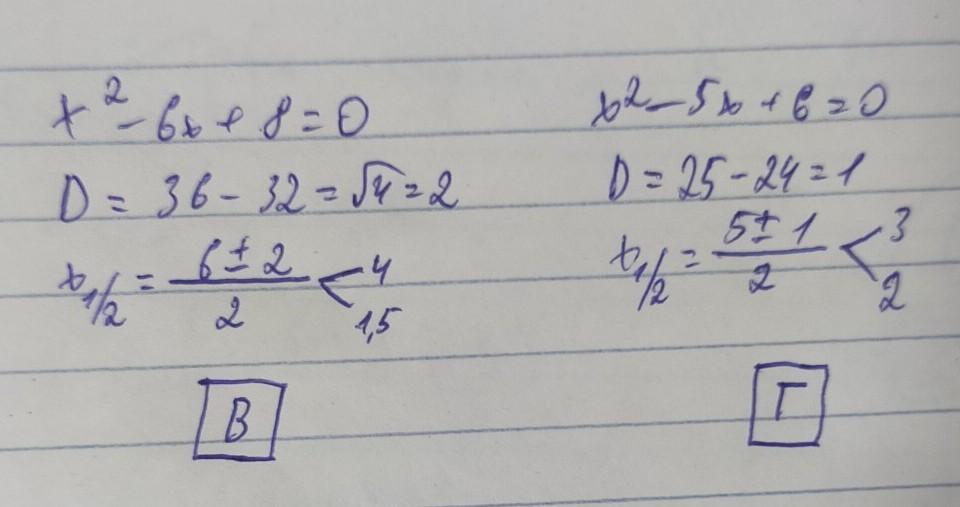 x² - 6x + 8 = 0
D = 36 - 32 = √4 = 2
x₁/₂ = (6 ± 2)/2 < 4
1,5
В
x² - 5x + 6 = 0
D = 25 - 24 = 1
x₁/₂ = (5 ± 1)/2 < 3
2
Г